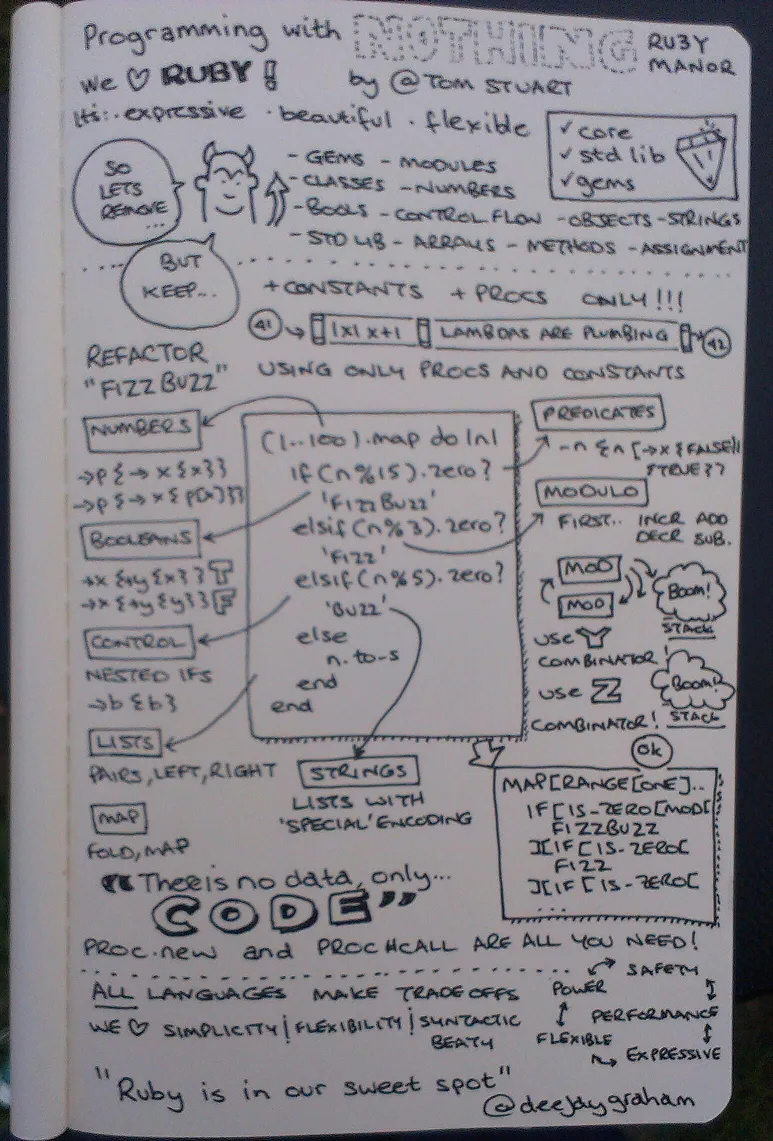 Programming with NOTHING RUBY MANOR
We ♡ RUBY!
by @TOM STUART
It's: · expressive · beautiful · flexible
✓ core
✓ std lib
✓ gems
SO
LETS
REMOVE
...
- GEMS - MODULES
- CLASSES - NUMBERS
- BOOLS - CONTROL FLOW - OBJECTS - STRINGS
- STD LIB - ARRAYS - METHODS - ASSIGNMENT
BUT
KEEP...
+ CONSTANTS + PROCS ONLY!!!
41 → |x| x+1 LAMBDAS ARE PLUMBING → 42
REFACTOR
"FIZZ BUZZ"
USING ONLY PROCS AND CONSTANTS
NUMBERS
→p {→ x {x}}
→p {→ x { p[x]}}
BOOLEANS
→x {→y {x}} T
→x {→y {y}} F
CONTROL
NESTED IFS
→b {b}
LISTS
PAIRS, LEFT, RIGHT
MAP
FOLD, MAP
(1..100).map do |n|
if (n%15).zero?
'FIZZ BUZZ'
elsif (n%3).zero?
'FIZZ'
elsif (n%5).zero?
'BUZZ'
else
n.to-s
end
end
STRINGS
LISTS WITH
'SPECIAL' ENCODING
PREDICATES
→n {n [→x {FALSE}]
[TRUE]}
MODULO
FIRST.. INCR ADD
DECR SUB.
MOD
MOD
BOOM!
STACK
USE Y
COMBINATOR!
BOOM!
STACK
USE Z
COMBINATOR!
OK
MAP[RANGE[ONE]..
IF[IS-ZERO[MOD[
FIZZBUZZ
][IF[IS-ZERO[
FIZZ
][IF[IS-ZERO[
...
"There is no data, only...
CODE"
PROC.new and PROC#CALL ARE ALL YOU NEED!
ALL LANGUAGES MAKE TRADE OFFS
WE ♡ SIMPLICITY | FLEXIBILITY | SYNTACTIC
BEATY
SAFETY
POWER
PERFORMANCE
FLEXIBLE
EXPRESSIVE
"Ruby is in our sweet spot"
@deejaygraham